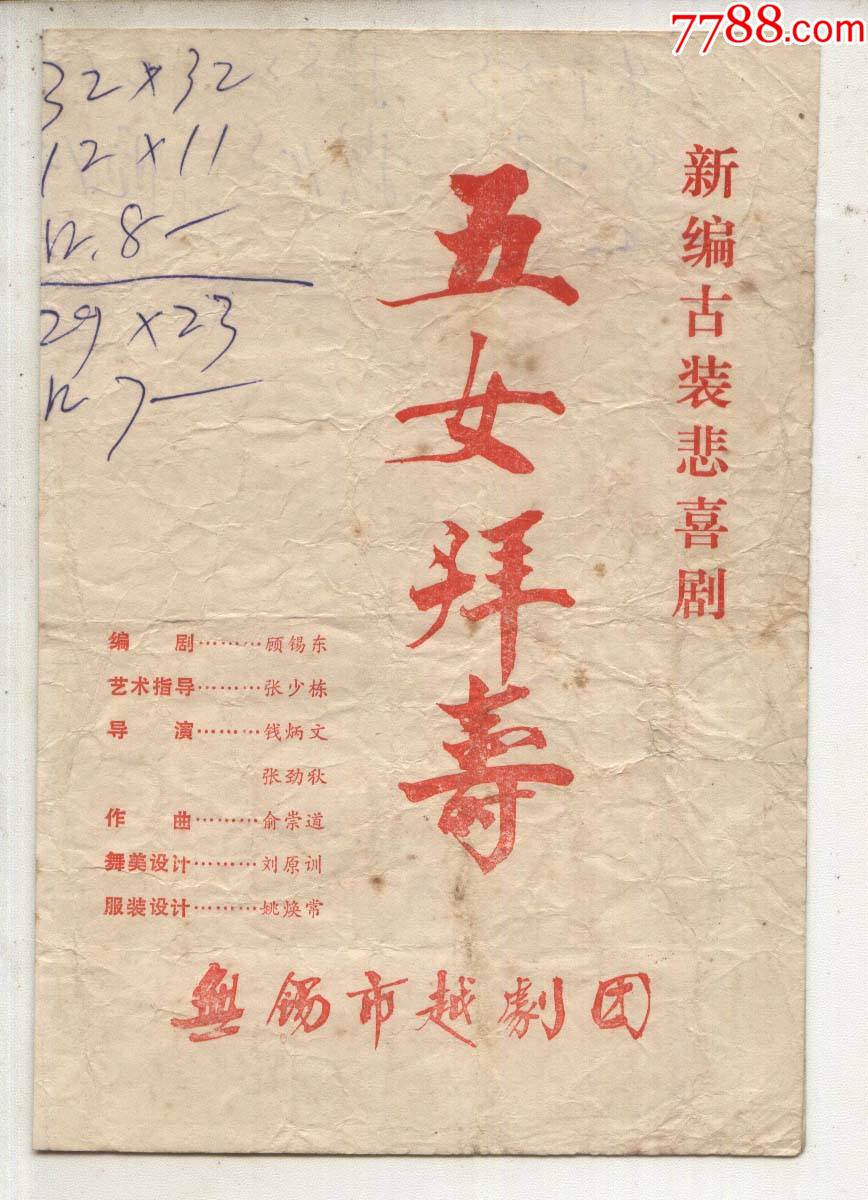 7788.com
32×32
12×11
8—
29×23
7—
新编古装悲喜剧
五女拜寿
编 剧………顾锡东
艺术指导………张少栋
导 演………钱炳文
张劲秋
作 曲………俞崇道
舞美设计………刘原训
服装设计………姚焕常
無锡市越劇团